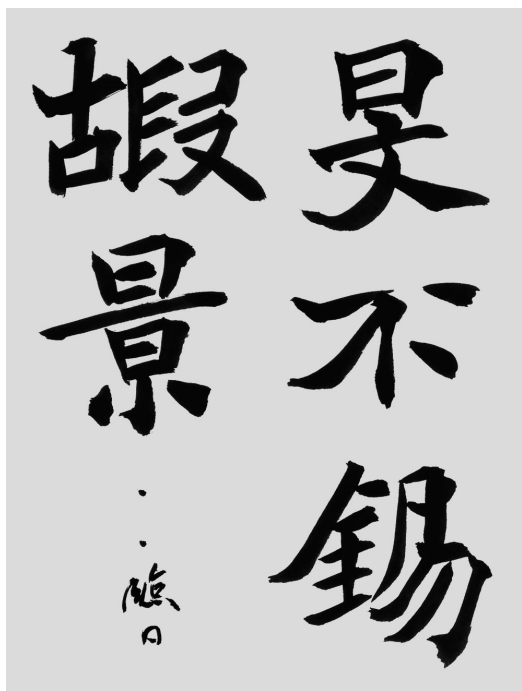 旻不錫
嘏景
臨